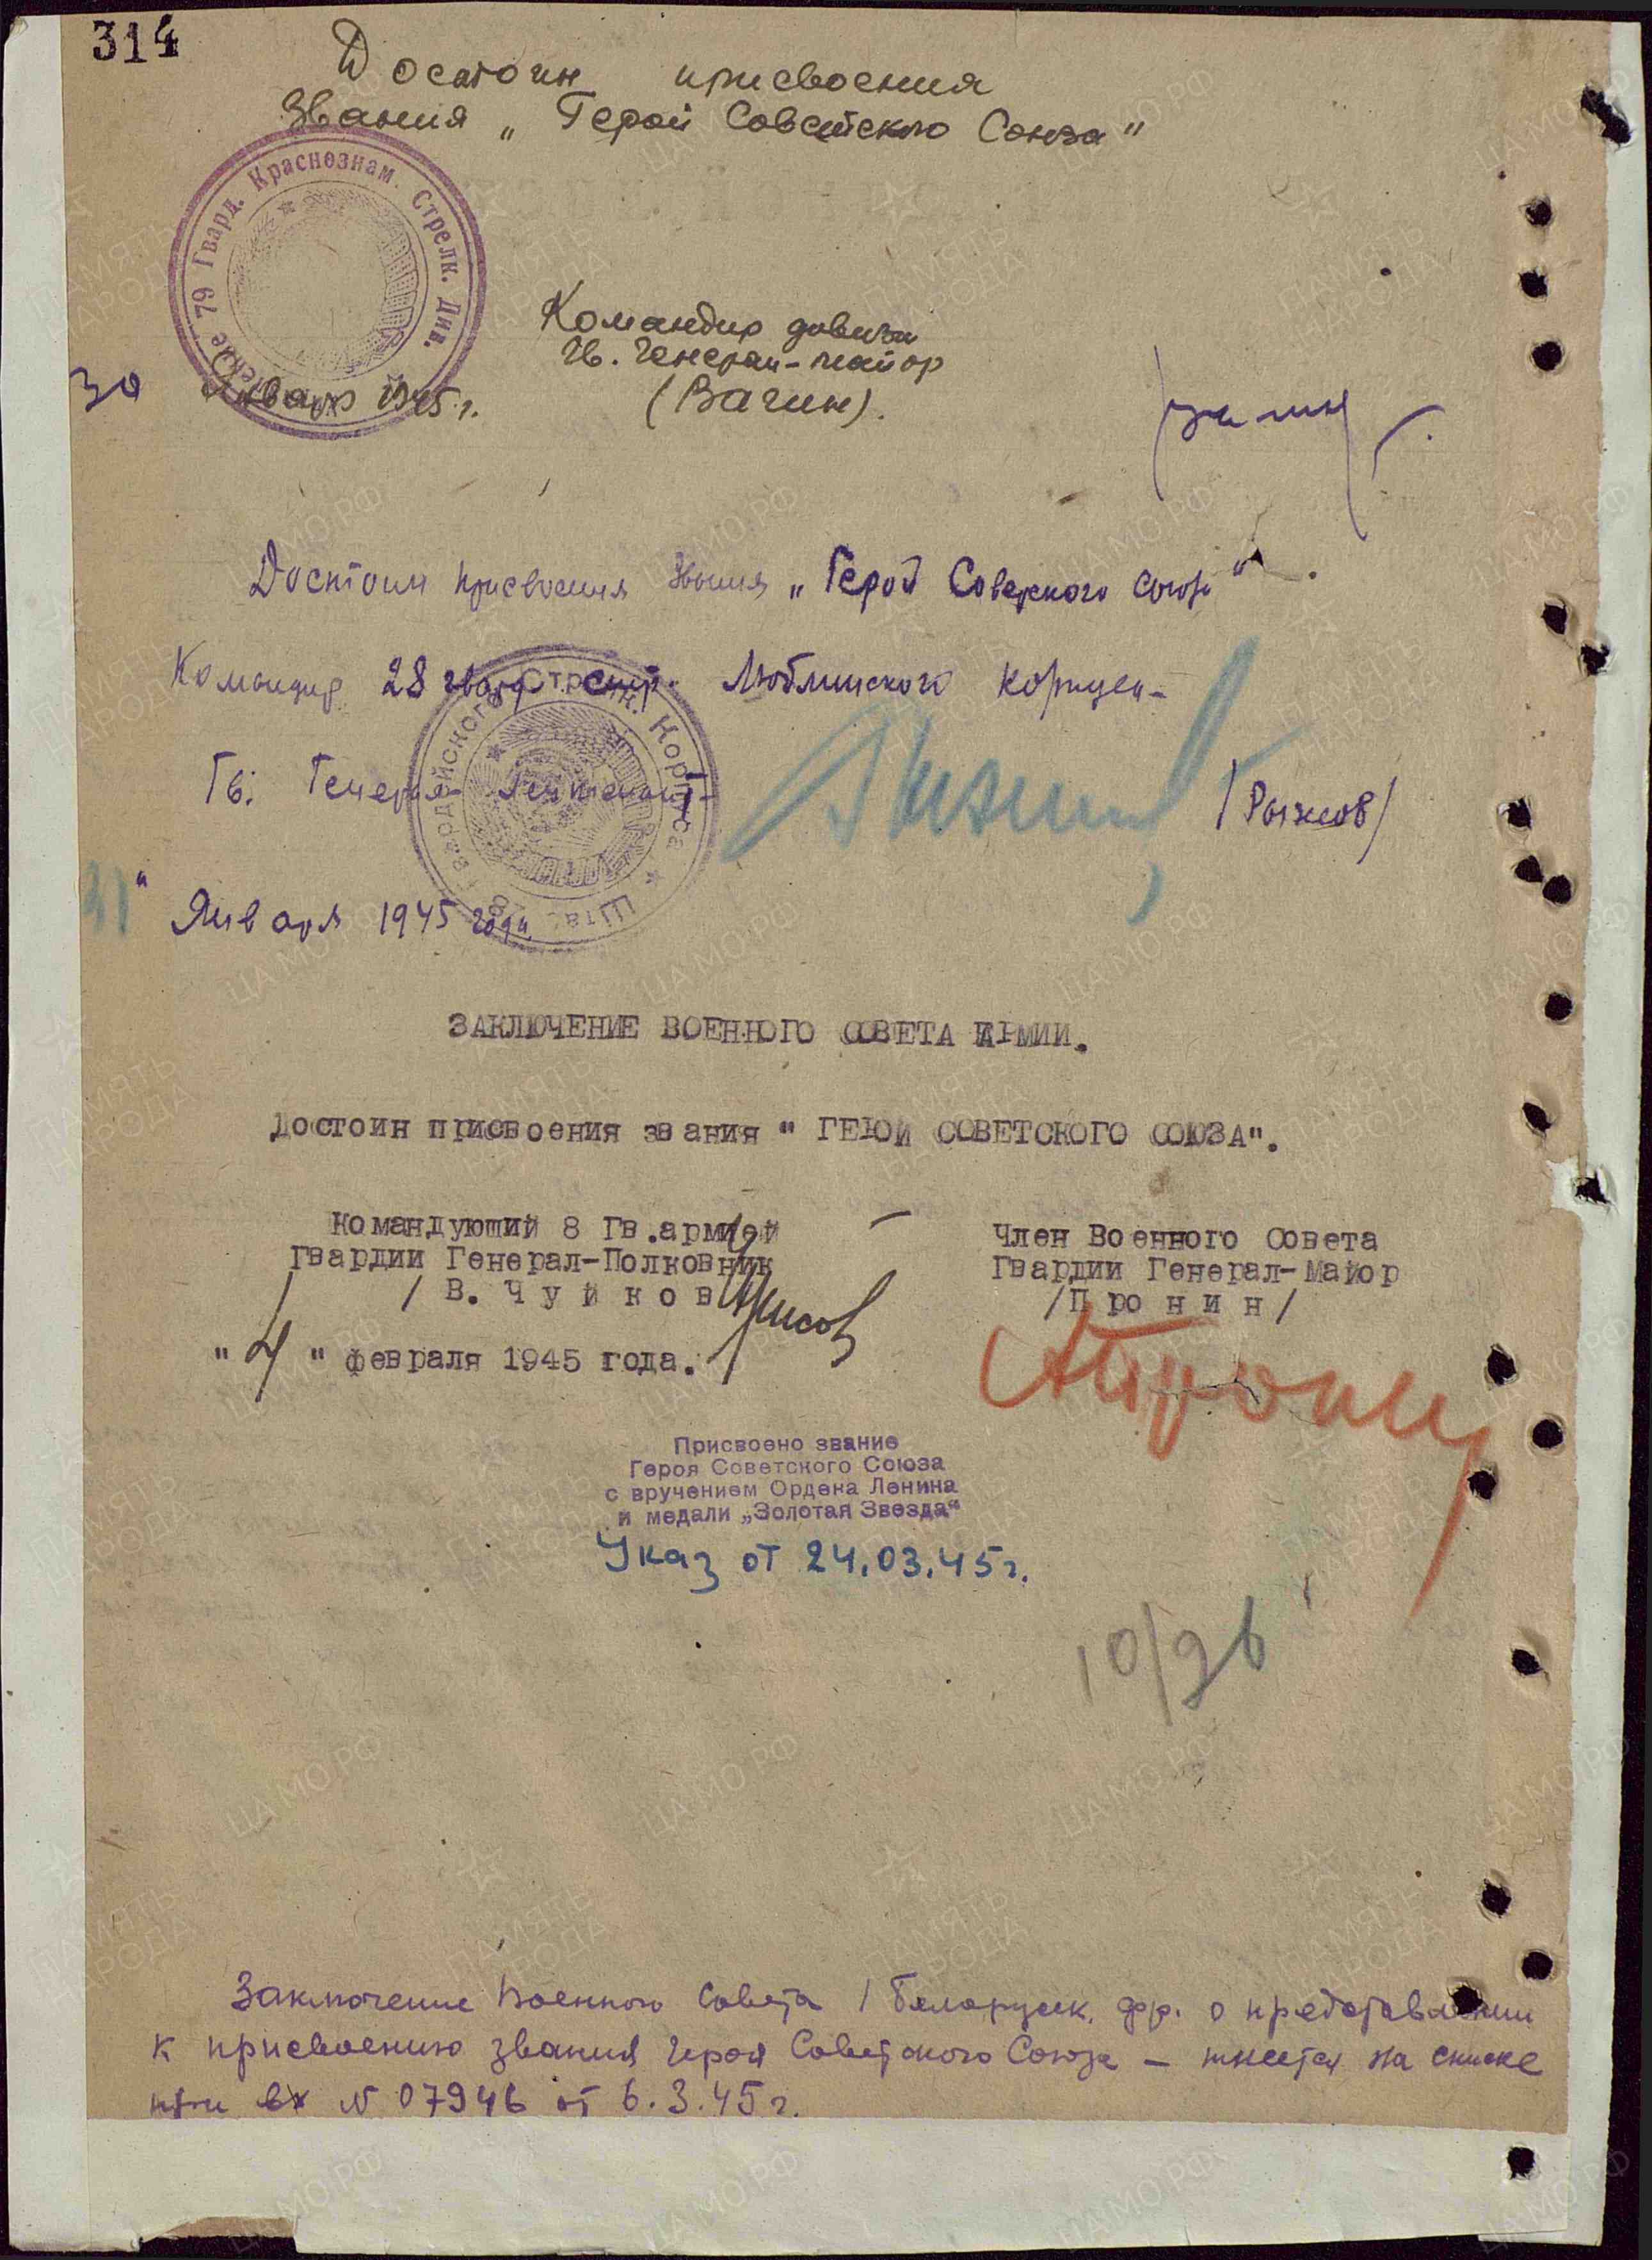 314
Достоин присвоения
Звания „Герой Советского Союза"
79 Гвард. Краснознам. Стрелк. Див.
Командир дивизии
Гв. Генерал-майор
(Вагин).
30 Январь 1945 г.
Достоин присвоения звания „Герой Советского Союза".
Командир 28 гвард. стр. Люблинского корпуса-
Гв. Генерал Лейтенант- /Рыжов/
31" Января 1945 года.
ЗАКЛЮЧЕНИЕ ВОЕННОГО СОВЕТА АРМИИ.
Достоин присвоения звания " ГЕРОЙ СОВЕТСКОГО СОЮЗА".
Командующий 8 Гв.армией
Гвардии Генерал-Полковник
/ В. Чуйков
"4" февраля 1945 года.
Член Военного Совета
Гвардии Генерал-Майор
/Пронин/
Присвоено звание
Героя Советского Союза
с вручением Ордена Ленина
и медали „Золотая Звезда"
Указ от 24.03.45г.
10/96
Заключение Военного Совета 1 Белорусск. фр. о представлении
к присвоению звания Героя Советского Союза – имеется на списке
при вх № 07946 от 6.3.45 г.